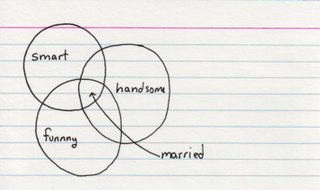 smart
handsome
funnny
married